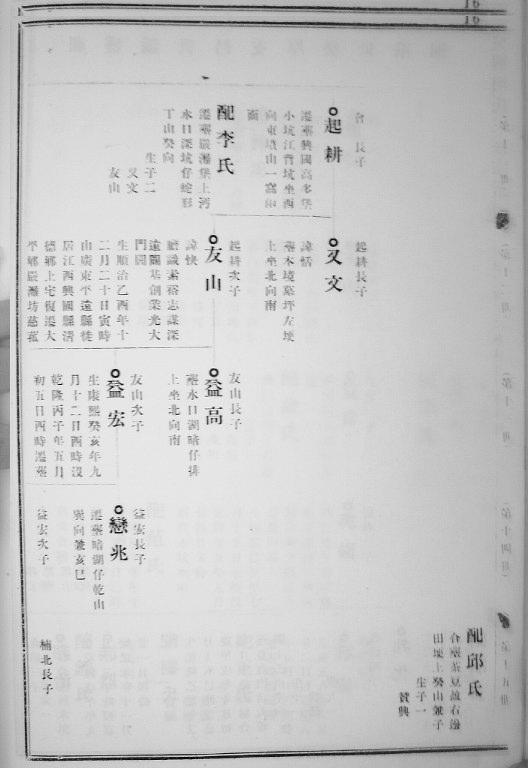 長子
起耕
遷葬興國高多堡
小坑江背坑坐西
向東墳山一窩
配李氏
遷葬嚴瀨堡上沔
水口深坑仔蛇形
丁山癸向
生子二
又文
友山
起耕長子
又文
諱恬
葬本境墓坪左墩
上坐北向南
起耕次子
友山
諱快
膽識素裕志謀深
遠闢基創業光大
門閭
生順治乙酉年十
二月二十日寅時
由廣東平遠縣徙
居江西興國縣清
德鄉上宅復遷大
平鄉嚴瀨坊慈菰
友山長子
益高
葬水口湖暗仔排
上坐北向南
友山次子
益宏
生康熙癸亥年九
月十二日酉時沒
乾隆丙子年五月
初五日酉時遷葬
益宏長子
戀兆
遷葬暗湖仔乾山
巽向兼亥巳
益宏次子
楠北長子
配邱氏
合葬茶豆墩右邊
田墩上癸山兼子
生子一
贊興